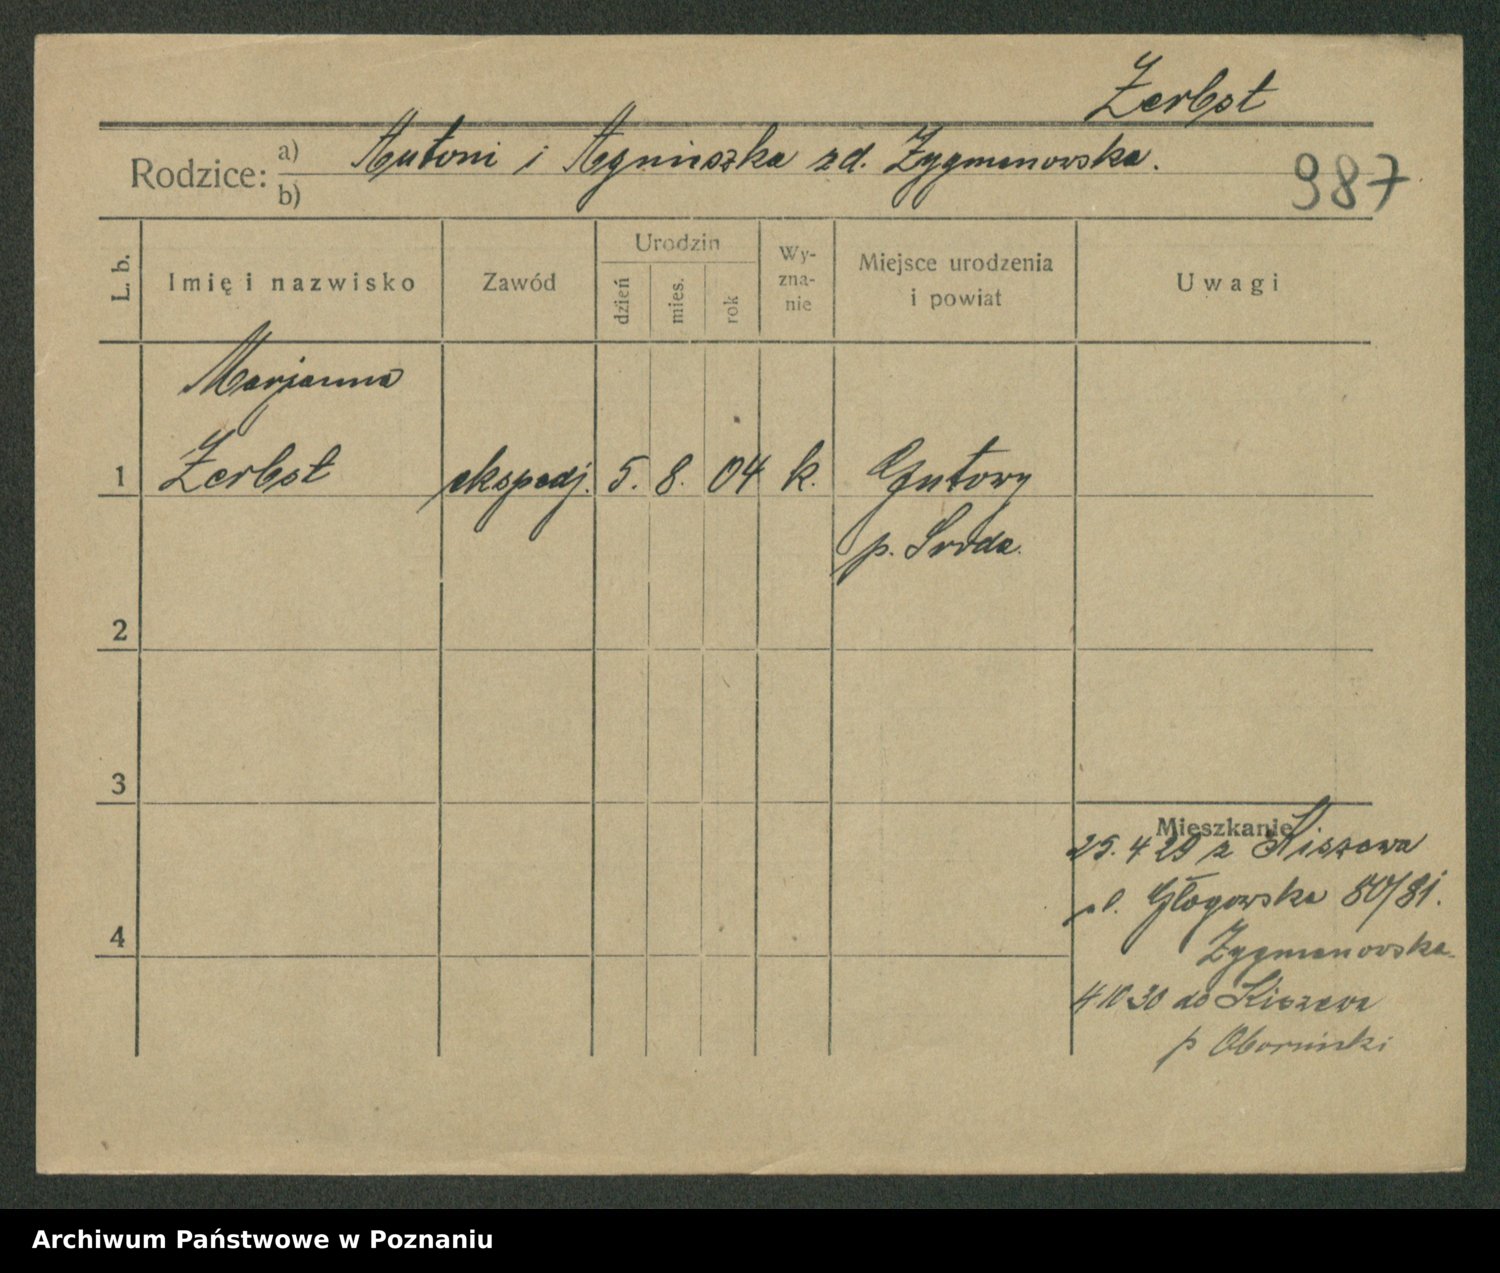 Zerbst
Rodzice: a) Antoni i Agnieszka zd. Zygmanowska.
b)
987
L. b.
Imię i nazwisko
Zawód
Urodzin
dzień
mies.
rok
Wy-
zna-
nie
Miejsce urodzenia
i powiat
Uwagi
Marjanna
1 Zerbst ekspedj. 5. 8. 04 k. Gutowy
p. Sroda.
2
3
Mieszkanie
25. 4 29 z Kiszewa
ul. Głogowska 80/81.
4
Zygmanowska.
4 10 30 do Kiszewa
p Obornicki
Archiwum Państwowe w Poznaniu